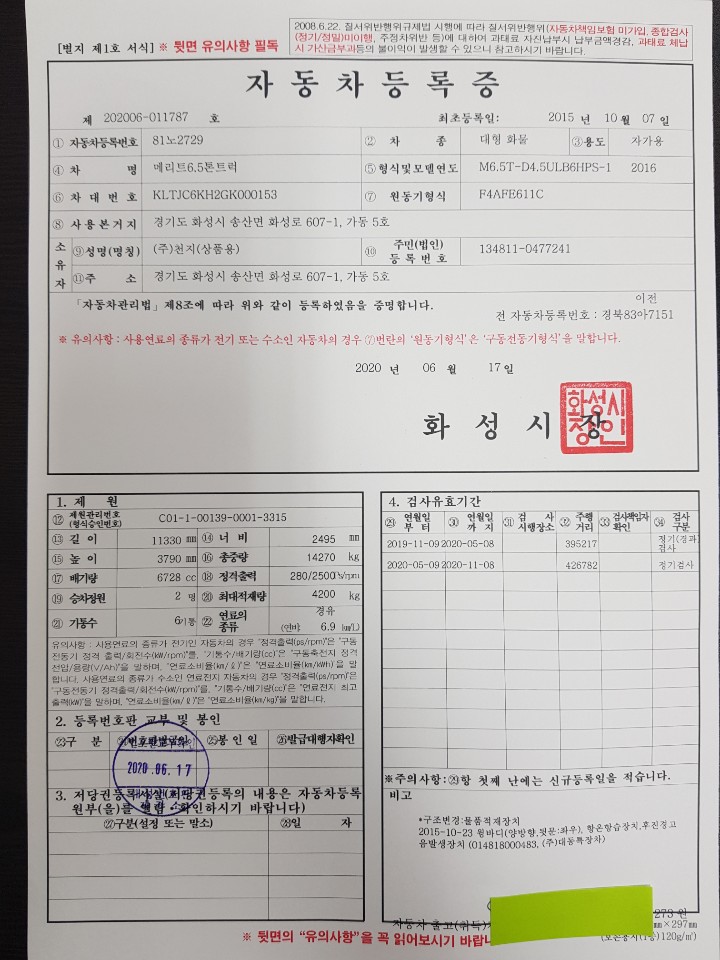 [별지 제1호 서식] ※ 뒷면 유의사항 필독
2008.6.22. 질서위반행위규제법 시행에 따라 질서위반행위(자동차책임보험 미가입, 종합검사
(정기/정밀)미이행, 주정차위반 등)에 대하여 과태료 자진납부시 납부금액경감, 과태료 체납
시 가산금부과등의 불이익이 발생할 수 있으니 참고하시기 바랍니다.
자동차등록증
제 202006-011787 호 최초등록일: 2015 년 10 월 07 일
① 자동차등록번호 81노2729 ② 차 종 대형 화물 ③용도 자가용
④ 차 명 메리트6.5톤트럭 ⑤ 형식및모델연도 M6.5T-D4.5ULB6HPS-1 2016
⑥ 차 대 번 호 KLTJC6KH2GK000153 ⑦ 원동기형식 F4AFE611C
⑧ 사 용 본 거 지 경기도 화성시 송산면 화성로 607-1, 가동 5호
소유자 ⑨성명(명칭) (주)천지(상품용) ⑩ 주민(법인)등록번호 134811-0477241
⑪주 소 경기도 화성시 송산면 화성로 607-1, 가동 5호
「자동차관리법」제8조에 따라 위와 같이 등록하였음을 증명합니다.
이전
전 자동차등록번호 : 경북83아7151
※ 유의사항 : 사용연료의 종류가 전기 또는 수소인 자동차의 경우 ⑦번란의 '원동기형식'은 '구동전동기형식'을 말합니다.
2020 년 06 월 17 일
화 성 시 장
화성시장인
1. 제 원
⑫ 제원관리번호(형식승인번호) C01-1-00139-0001-3315
⑬ 길 이 11330 mm ⑭ 너 비 2495 mm
⑮ 높 이 3790 mm ⑯ 총중량 14270 kg
⑰ 배기량 6728 cc ⑱ 정격출력 280/2500 ps/rpm
⑲ 승차정원 2 명 ⑳ 최대적재량 4200 kg
㉑ 기통수 6기통 ㉒ 연료의 종류 경유 (연비: 6.9 km/L)
유의사항 : 사용연료의 종류가 전기인 자동차의 경우 "정격출력(ps/rpm)"은 "구동
전동기 정격 출력/회전수(kW/rpm)"를, "기통수/배기량(cc)"은 "구동축전지 정격
전압/용량(V/Ah)"을 말하며, "연료소비율(km/ℓ)"은 "연료소비율(km/kWh)을 말
합니다. 사용연료의 종류가 수소인 연료전지 자동차의 경우 "정격출력(ps/rpm)"은
"구동전동기 정격출력/회전수(kW/rpm)"를, "기통수/배기량(cc)"은 "연료전지 최고
출력(kW)"을 말하며, "연료소비율(km/ℓ)"은 "연료소비율(km/kg)"을 말합니다.
2. 등록번호판 교부 및 봉인
㉓구 분 ㉔번호판발급일 ㉕봉 인 일 ㉖발급대행자확인
2020 .06. 17
3. 저당권등록사실(저당권등록의 내용은 자동차등록
원부(을)를 열람·확인하시기 바랍니다)
㉗구분(설정 또는 말소) ㉘일 자
4. 검사유효기간
㉙ 연월일부터 ㉚ 연월일까지 ㉛ 검사시행장소 ㉜ 주행거리 ㉝ 검사책임자확인 ㉞ 검사구분
2019-11-09 2020-05-08 395217 정기(경과)검사
2020-05-09 2020-11-08 426782 정기검사
※주의사항:㉙항 첫째 난에는 신규등록일을 적습니다.
비고
*구조변경:물품적재장치
2015-10-23 윙바디(양방향,뒷문:좌우), 항온항습장치,후진경고
음발생장치 (014818000483, (주)대동특장차)
273 원
자동차 출고(취득)
mm×297mm
(보존용지(1종)120g/㎡)
※ 뒷면의 "유의사항"을 꼭 읽어보시기 바랍니